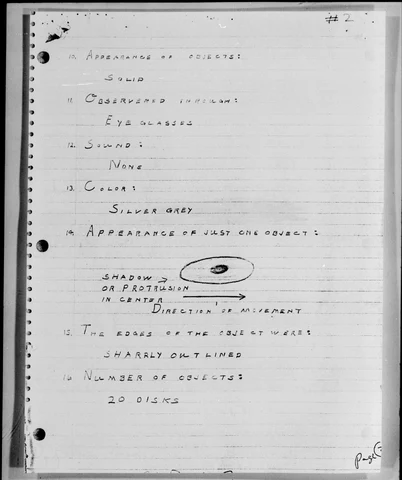 # 2
10. APPEARANCE OF OBJECTS:
SOLID
11. OBSERVERED THROUGH:
EYE GLASSES
12. SOUND:
NONE
13. COLOR:
SILVER GREY
14. APPEARANCE OF JUST ONE OBJECT:
SHADOW
OR PROTRUSION
IN CENTER
DIRECTION OF MOVEMENT
15. THE EDGES OF THE OBJECT WERE:
SHARRLY OUTLINED
16. NUMBER OF OBJECTS:
20 DISKS
page